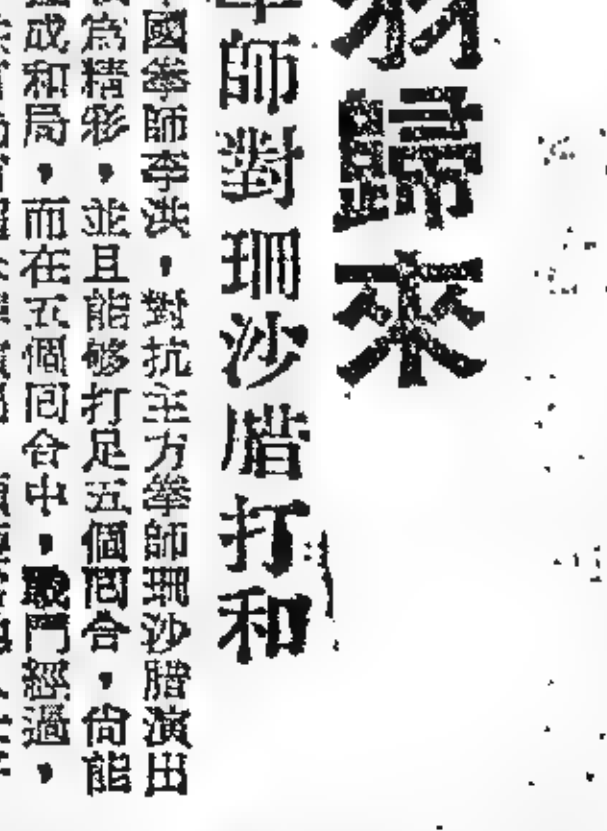 歸來
師對珊沙腊打和
國拳師李洪，對抗主方拳師珊沙腊演出
為精彩，並且能够打足五個囘合，尙能
成和局，而在五個囘合中，戰鬥經過，